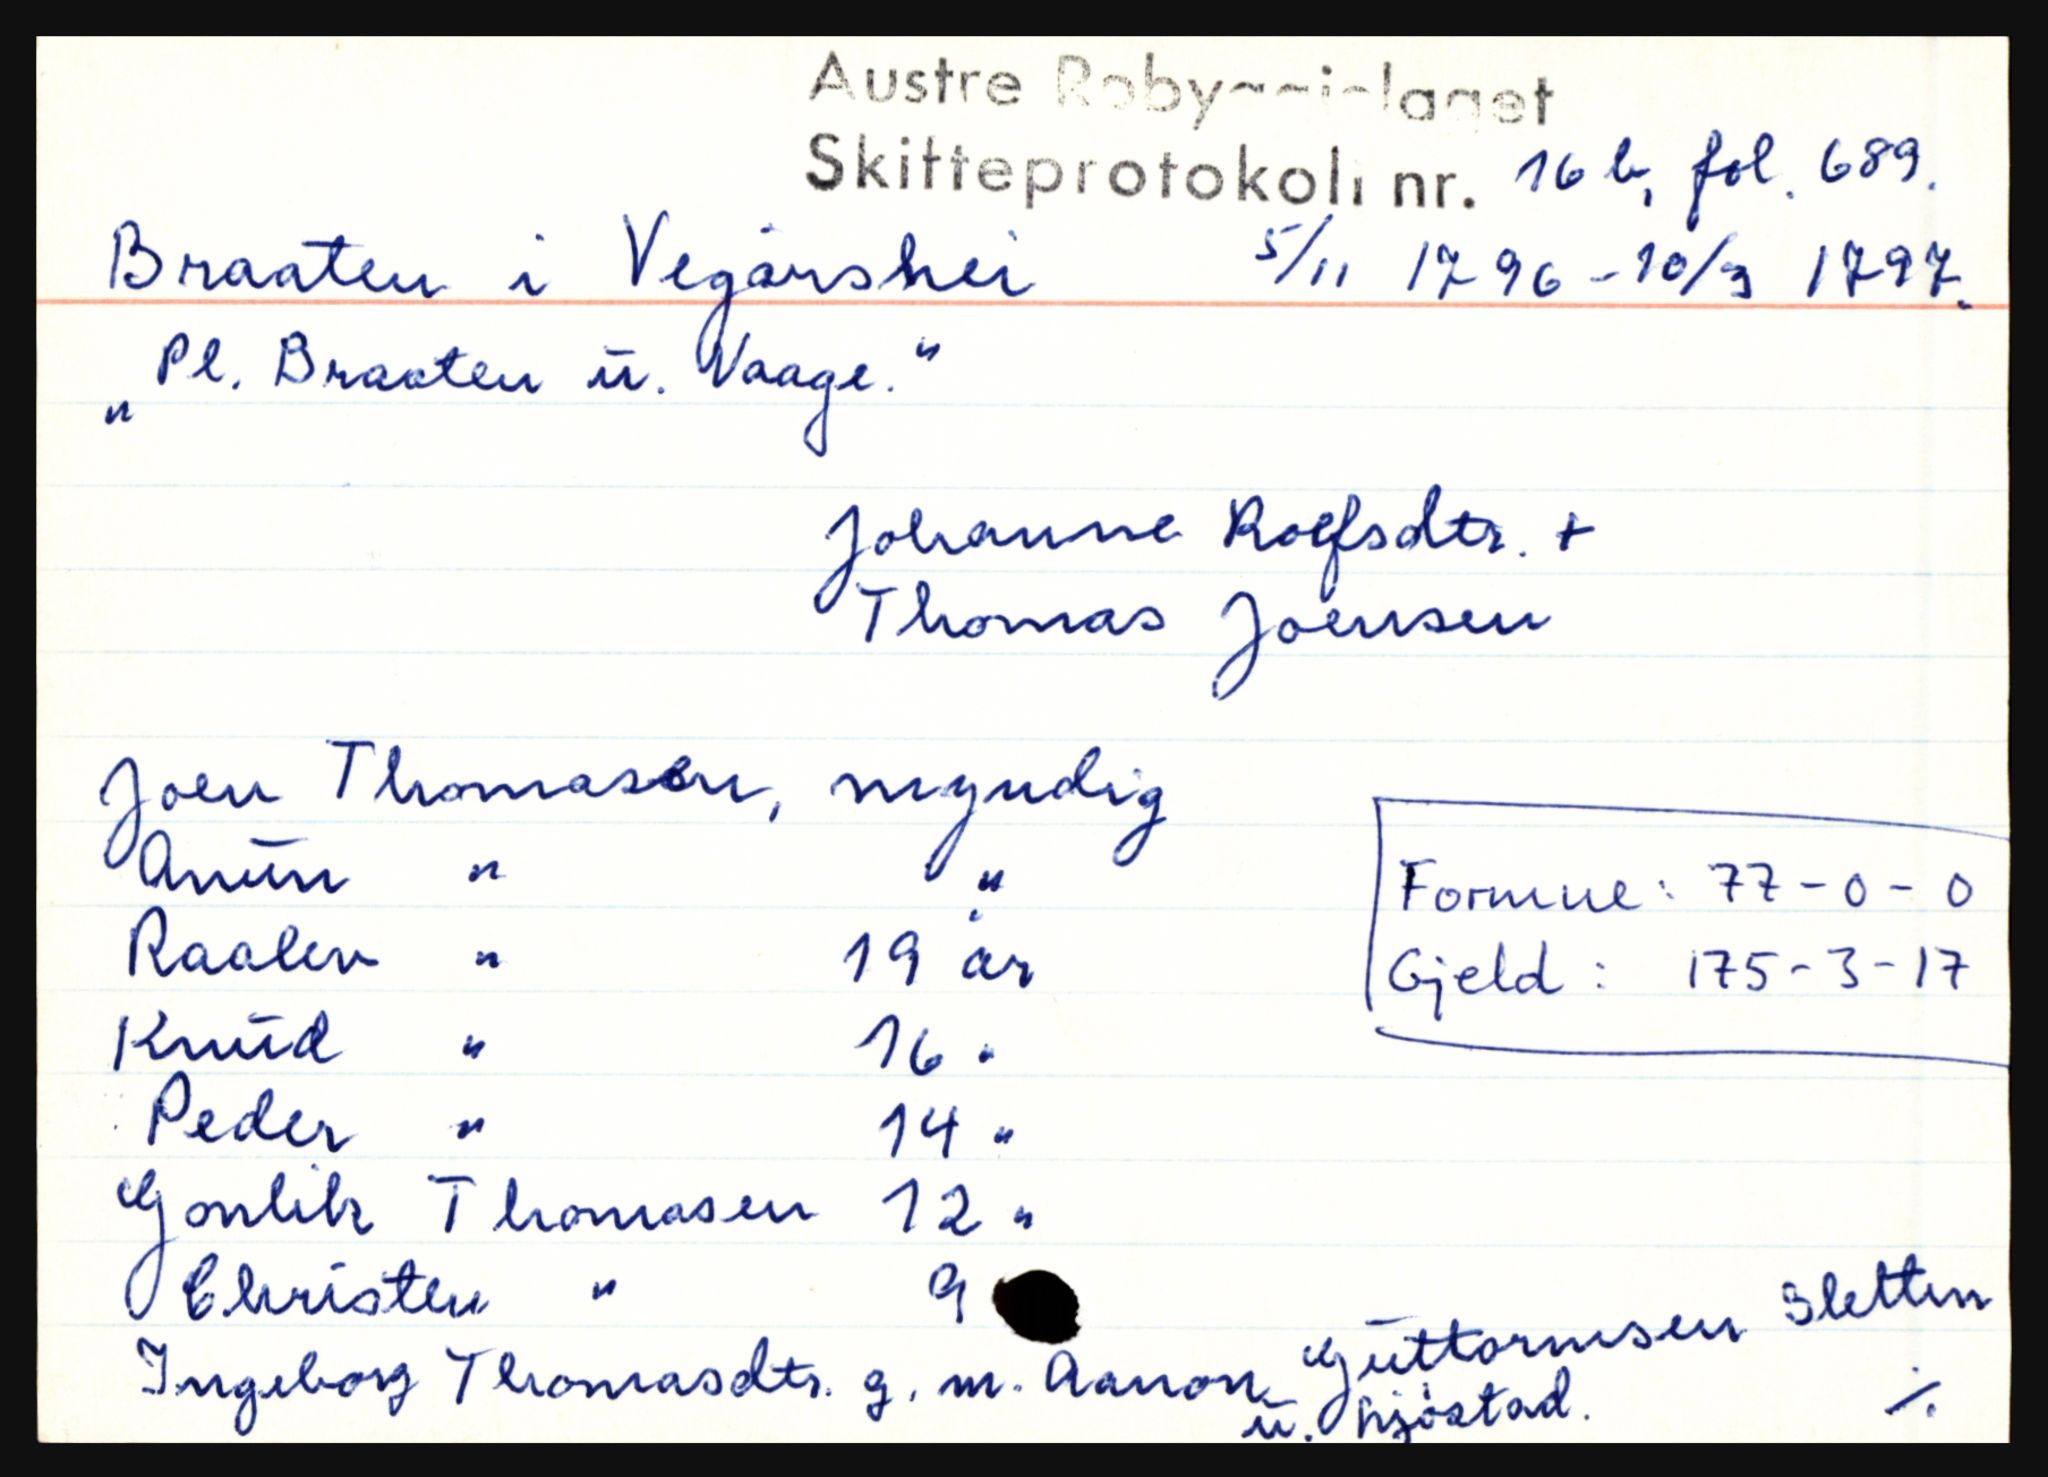 Austre Robyggjelaget
Skifteprotokoll nr. 16 b, fol. 689.
Braaten i Vegårshei 5/11 1796 - 10/3 1797.
„Pl. Braaten u. Vaage."
Johanne Rolfsdtr. +
Thomas Joensen
Joen Thomasen, myndig
Anun " "
Raalev " 19 år
Knud " 16 "
Peder " 14 "
Gonlik Thomasen 12 "
Christen " 9
Ingeborg Thomasdtr. g. m. Aanon Guttormsen Sletten
u. Mjöstad. ./.
Formue: 77-0-0
Gjeld: 175-3-17